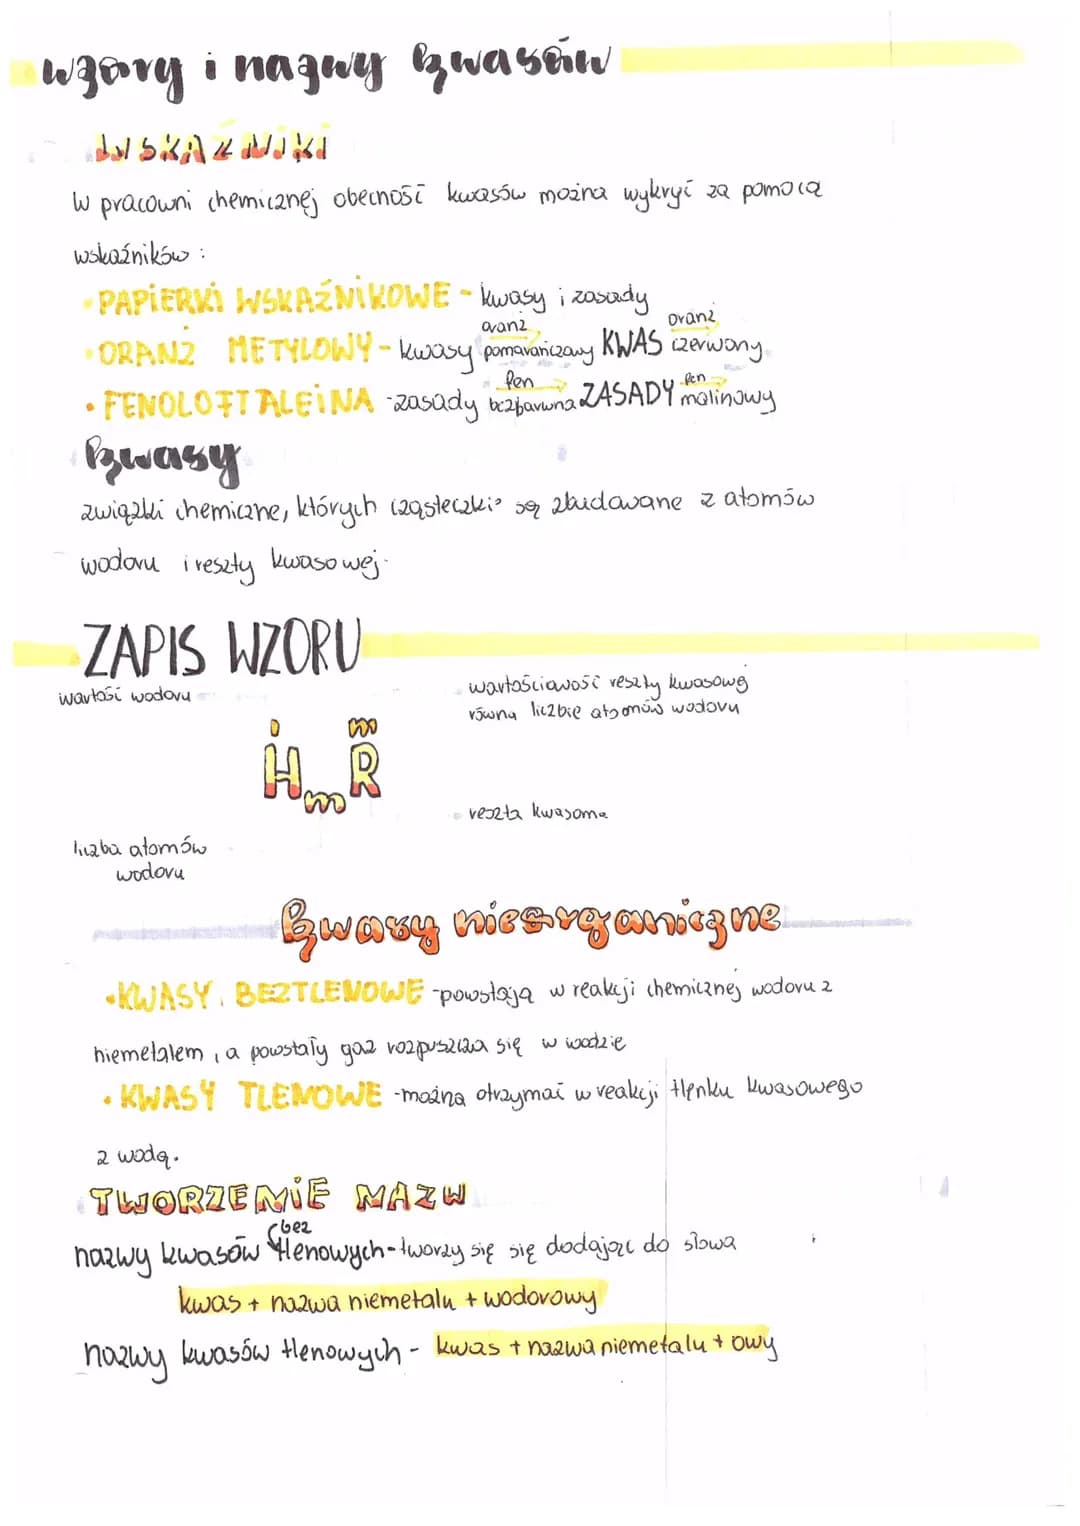 wzory i nazwy kwasów
WSKAŹNIKI
W pracowni chemicznej obecność kwasów można wykryć za pomocą
wskaźników:
• PAPIERKI WSKAŹNIKOWE - kwasy i zasady
• ORANŻ METYLOWY - kwasy pomarańczowy oranż KWAS oranż czerwony
• FENOLOFTALEINA - zasady fen bezbarwna ZASADY fen malinowy
kwasy
związki chemiczne, których cząsteczki są zbudowane z atomów
wodoru i reszty kwasowej.
ZAPIS WZORU
wartość wodoru
wartościowość reszty kwasowej
równa liczbie atomów wodoru
I m
HmR
reszta kwasowa
liczba atomów
wodoru
kwasy nieorganiczne
• KWASY BEZTLENOWE - powstają w reakcji chemicznej wodoru z
niemetalem, a powstały gaz rozpuszcza się w wodzie
• KWASY TLENOWE - można otrzymać w reakcji tlenku kwasowego
z wodą.
TWORZENIE NAZW
nazwy kwasów bez tlenowych - tworzy się się dodając do słowa
kwas + nazwa niemetalu + wodorowy
nazwy kwasów tlenowych - kwas + nazwa niemetalu + owy